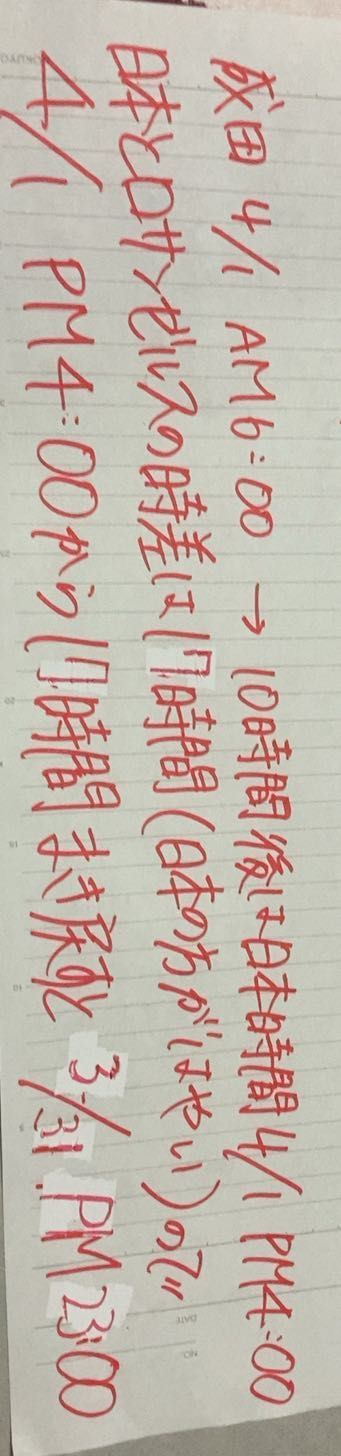 成田 4/1 AM6:00 → 10時間後は日本時間 4/1 PM4:00
日本とロサンゼルスの時差は17時間(日本の方がはやい)ので
4/1 PM4:00から17時間まき戻すと 3/31 PM23:00
DATE
NO